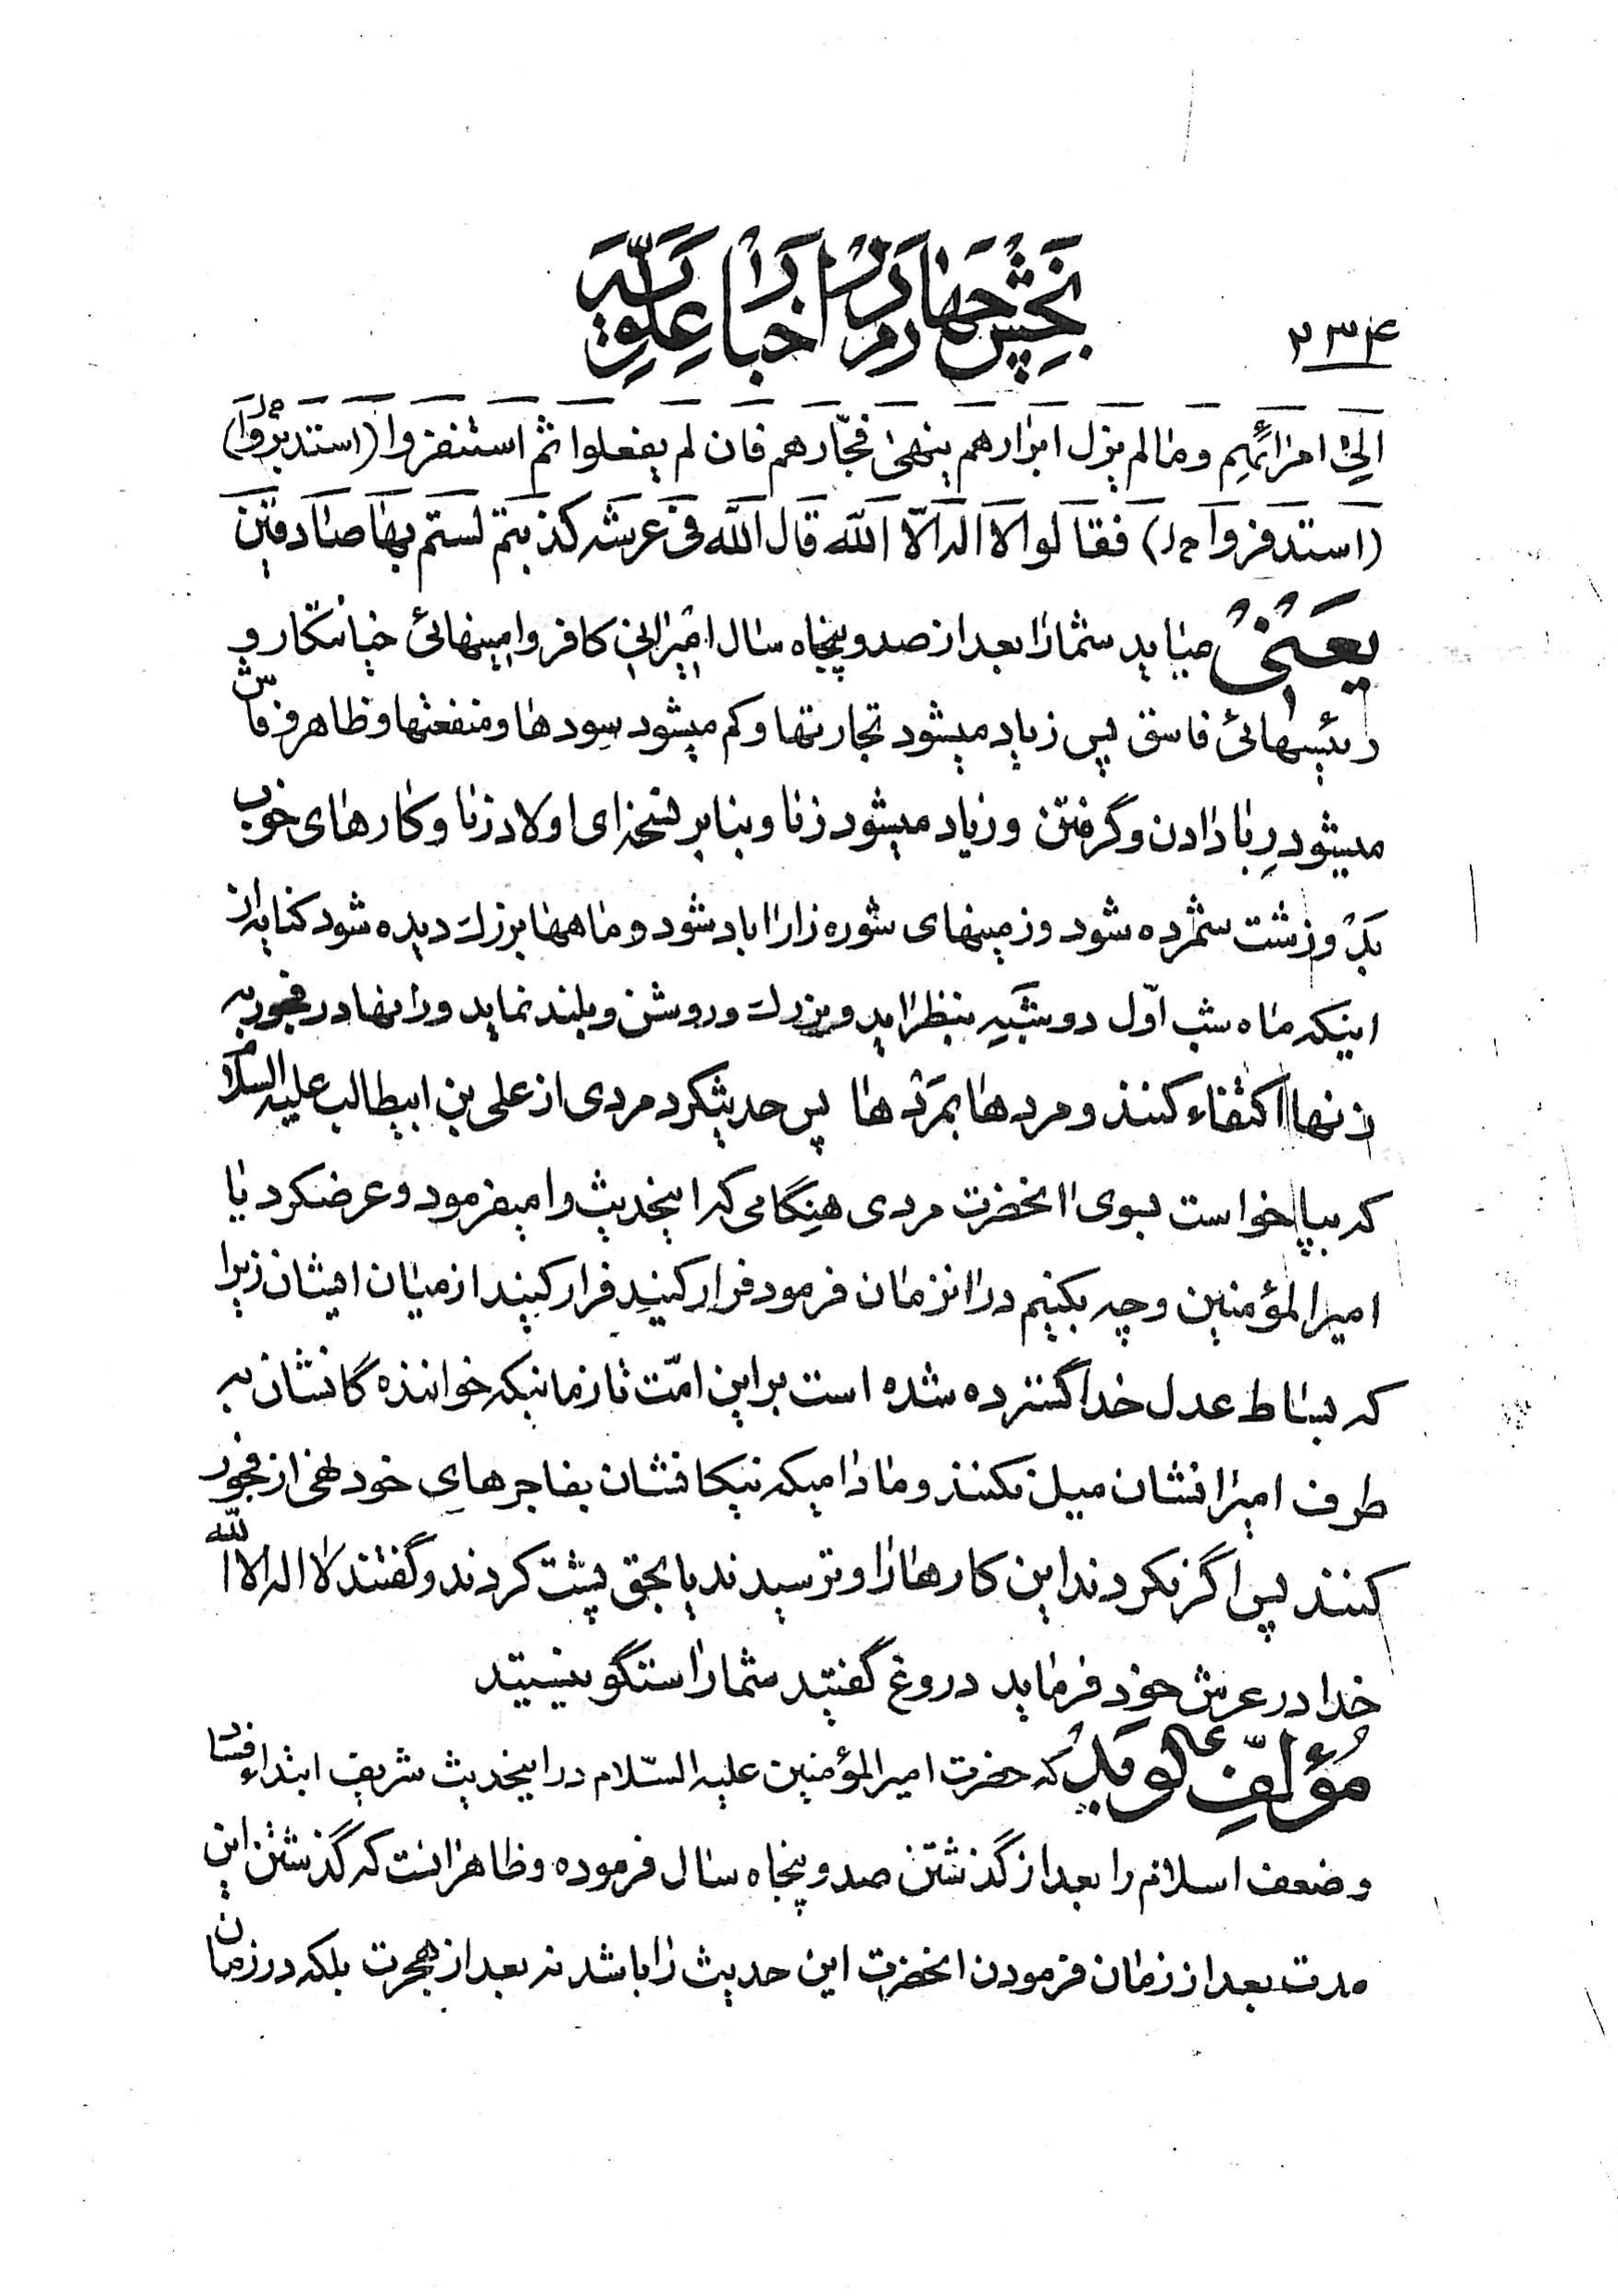 بخش چهارم در اخبار علویه
۲۳۴
الی امرائهم وما لم یزل ابرارهم ینهی فجّارهم فان لم یفعلوا ثم استنفروا (استدبروا خ‌ل)
(استدفروا خ‌ل) فقالوا لا اله الّا الله قال الله فی عرشه کذبتم لستم بها صادقین
یعنی میاید شمارا بعد از صد و پنجاه سال امیرانی کافر و امینهائی خیانتکار و
رئیسهائی فاسق پس زیاد میشود تجارتها و کم میشود سودها و منفعتها و ظاهر و فاش
میشود رِبا دادن و گرفتن و زیاد میشود زنا و بنابر نسخه‌ای اولاد زنا و کارهای خوب
بد و زشت شمرده شود و زمینهای شوره زار اباد شود و ماهها بزرك دیده شود کنایه از
اینکه ماه شب اوّل دو شَبِه بنظر اید و بزرك و روشن و بلند نماید و زانها در فجور به
زنها اکتفاء کنند و مردها بمردها پس حدیثکرد مردی از علی بن ابیطالب علیه السلام
که بپا خواست بسوی انحضرت مردی هنگامی که اینحدیث را میفرمود و عرضکرد یا
امیر المؤمنین وچه بکنیم در انزمان فرمود فرار کنید فرار کنید از میان ایشان زیرا
که بساط عدل خدا گسترده شده است بر این امّت تا زمانیکه خواننده گانشان به
طرف امیرانشان میل نکنند و مادامیکه نیکانشان بفاجرهای خود نهی از فجور
کنند پس اگر نکردند این کارها را و ترسیدند یا بحق پشت کردند و گفتند لا اله الا الله
خدا در عرش خود فرماید دروغ گفتید شما راستگو نیستید
مؤلّف گوید که حضرت امیر المؤمنین علیه السّلام در اینحدیث شریف ابتداء فساد
و ضعف اسلام را بعد از گذشتن صد و پنجاه سال فرموده و ظاهر انست که گذشتن این
مدت بعد از زمان فرمودن انحضرت این حدیث را باشد نه بعد از هجرت بلکه در زمان